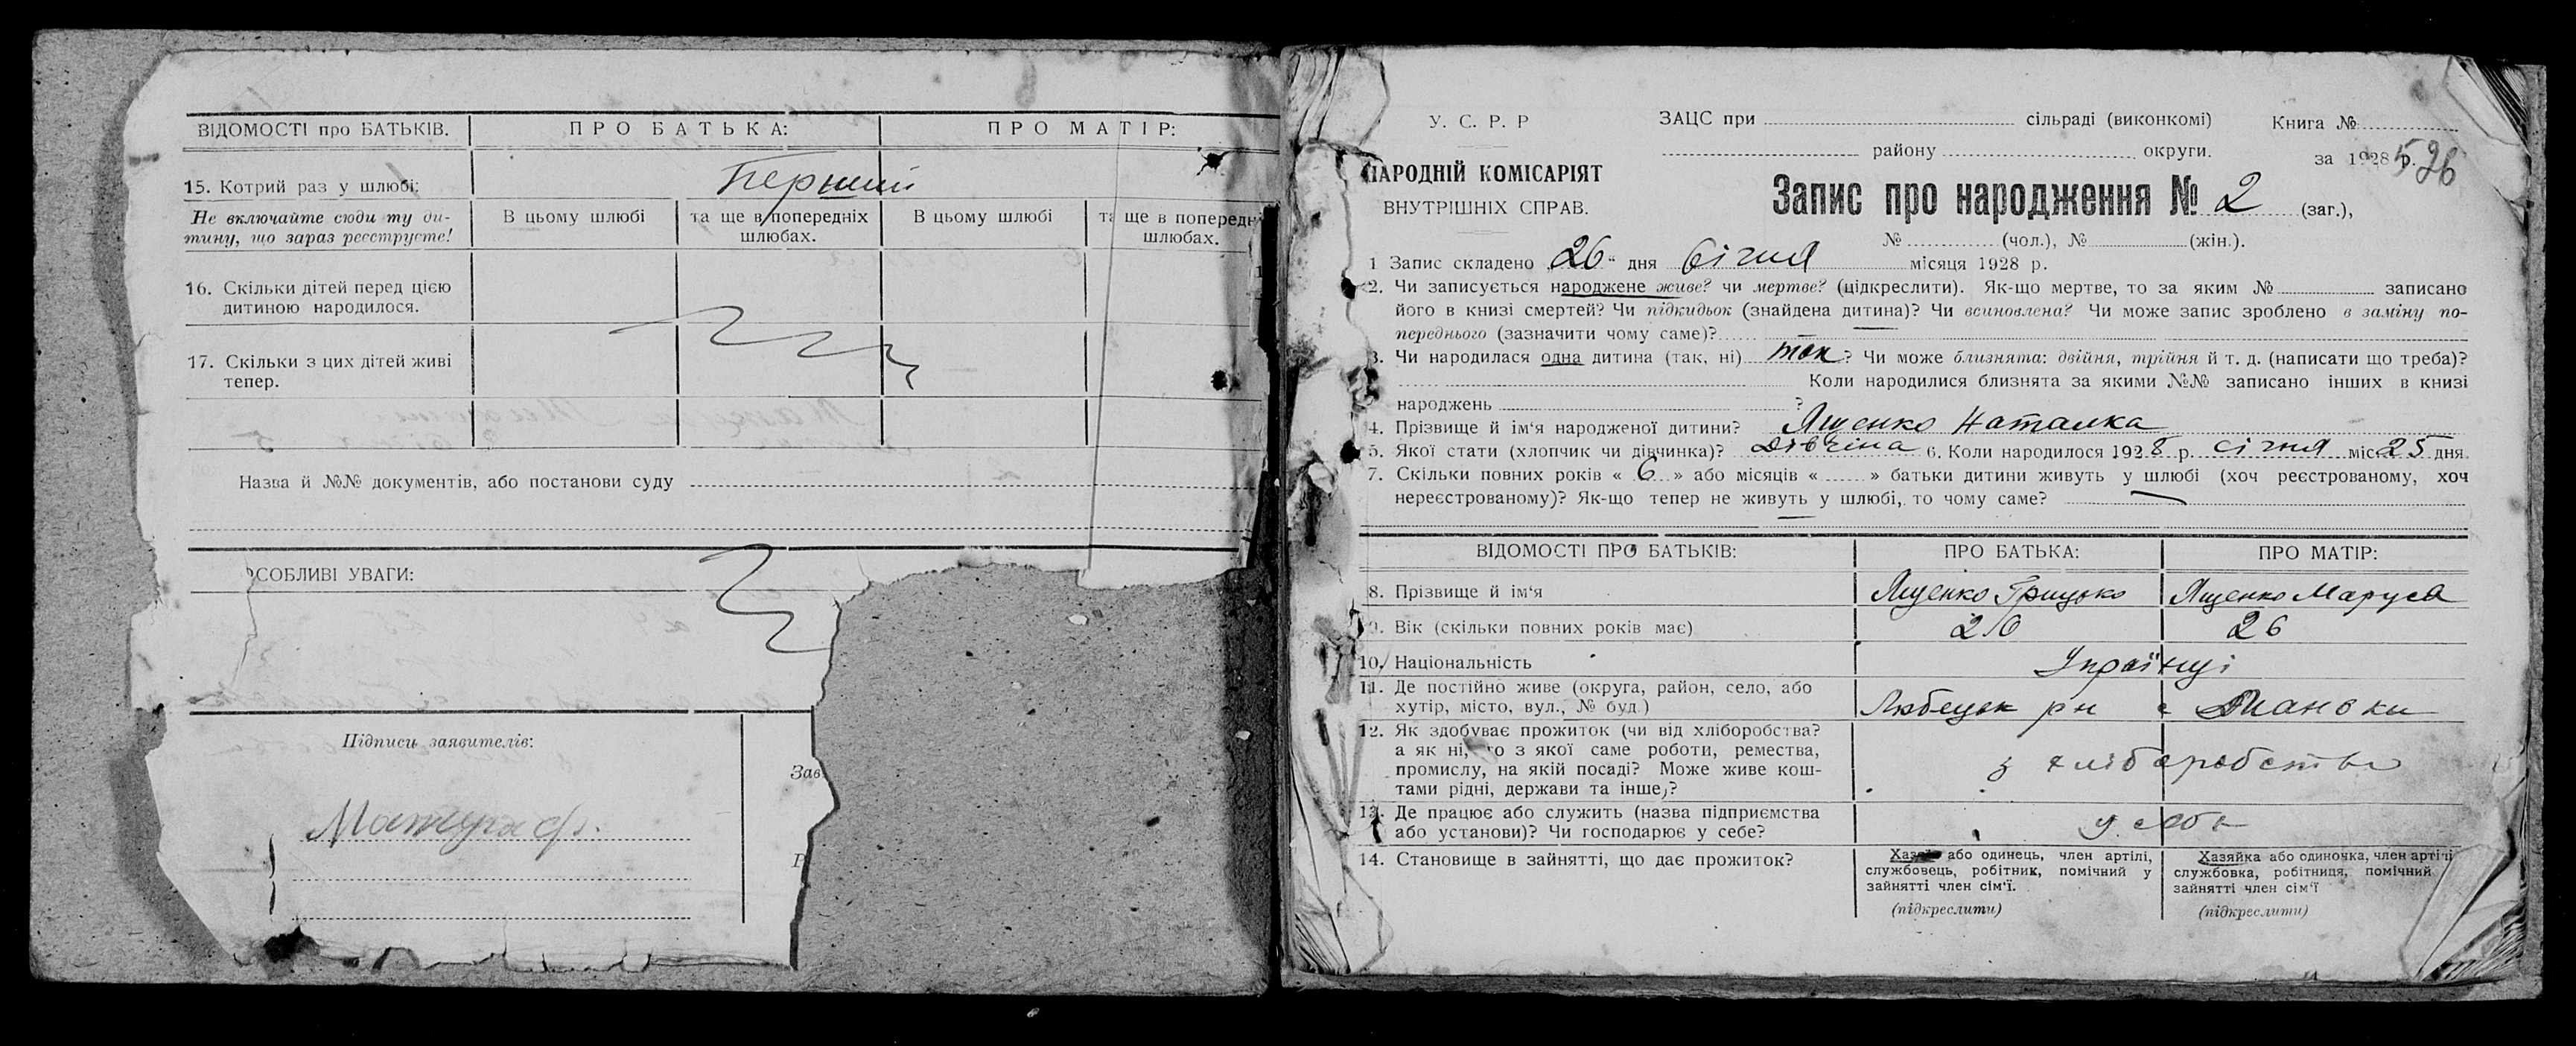 ВІДОМОСТІ про БАТЬКІВ. ПРО БАТЬКА: ПРО МАТІР:
15. Котрий раз у шлюбі: Перший
Не включайте сюди ту ди-
тину, що зараз реєструєте!
В цьому шлюбі
та ще в попередніх
шлюбах.
В цьому шлюбі
та ще в попередн
шлюбах.
16. Скільки дітей перед цією
дитиною народилося.
17. Скільки з цих дітей живі
тепер.
Назва й №№ документів, або постанови суду
ОСОБЛИВІ УВАГИ:
Підписи заявителів:
Зав
У. С. Р. Р
НАРОДНІЙ КОМІСАРІЯТ
ВНУТРІШНІХ СПРАВ.
ЗАЦС при сільраді (виконкомі)
району округи.
Книга №
за 1928 р.
526
Запис про народження № 2 (заг.),
№ (чол.), № (жін.).
1 Запис складено 26 " дня Січня місяця 1928 р.
2. Чи записується народжене живе? чи мертве? (підкреслити). Як-що мертве, то за яким № записано
його в книзі смертей? Чи підкидьок (знайдена дитина)? Чи всиновлена? Чи може запис зроблено в заміну по-
переднього (зазначити чому саме)?
3. Чи народилася одна дитина (так, ні) так? Чи може близнята: двійня, трійня й т. д. (написати що треба)?
Коли народилися близнята за якими №№ записано інших в книзі
народжень ?
4. Прізвище й ім'я народженої дитини? Ященко Наталка
5. Якої стати (хлопчик чи дівчинка)? Дівчина 6. Коли народилося 1928 р. січня міс. 25 дня.
7. Скільки повних років « 6 » або місяців « » батьки дитини живуть у шлюбі (хоч реєстрованому, хоч
нереєстрованому)? Як-що тепер не живуть у шлюбі, то чому саме?
ВІДОМОСТІ ПРО БАТЬКІВ: ПРО БАТЬКА: ПРО МАТІР:
8. Прізвище й ім'я Ященко Грицько Ященко Маруся
9. Вік (скільки повних років має) 26 26
10. Національність Українці
11. Де постійно живе (округа, район, село, або
хутір, місто, вул., № буд.) Любецьк рн с
12. Як здобуває прожиток (чи від хліборобства?
а як ні, то з якої саме роботи, ремества,
промислу, на якій посаді? Може живе кош-
тами рідні, держави та інше)?
з хліборобства
13. Де працює або служить (назва підприємства
або установи)? Чи господарює у себе?
у себе
14. Становище в зайнятті, що дає прожиток?
Хазяїн або одинець, член артілі,
службовець, робітник, помічний у
зайнятті член сім'ї.
(підкреслити)
Хазяйка або одиночка, член артілі
службовка, робітниця, помічний
зайнятті член сім'ї
(підкреслити)